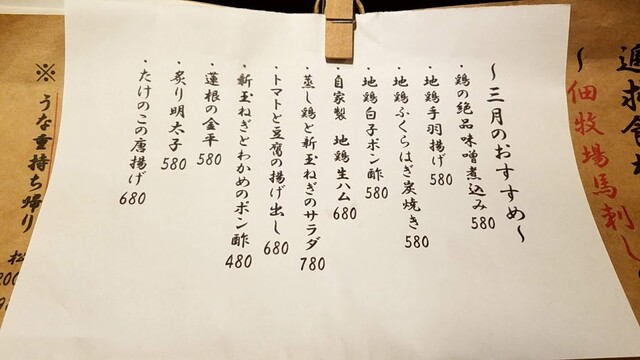 〜佃牧場馬刺し
〜三月のおすすめ〜
・鶏の絶品味噌煮込み 580
・地鶏手羽揚げ 580
・地鶏ふくらはぎ炭焼き 580
・地鶏白子ポン酢 580
・自家製 地鶏生ハム 680
・蒸し鶏と新玉ねぎのサラダ 780
・トマトと豆腐の揚げ出し 680
・新玉ねぎとわかめのポン酢 480
・蓮根の金平 580
・炙り明太子 580
・たけのこの唐揚げ 680
※うな重持ち帰り
松